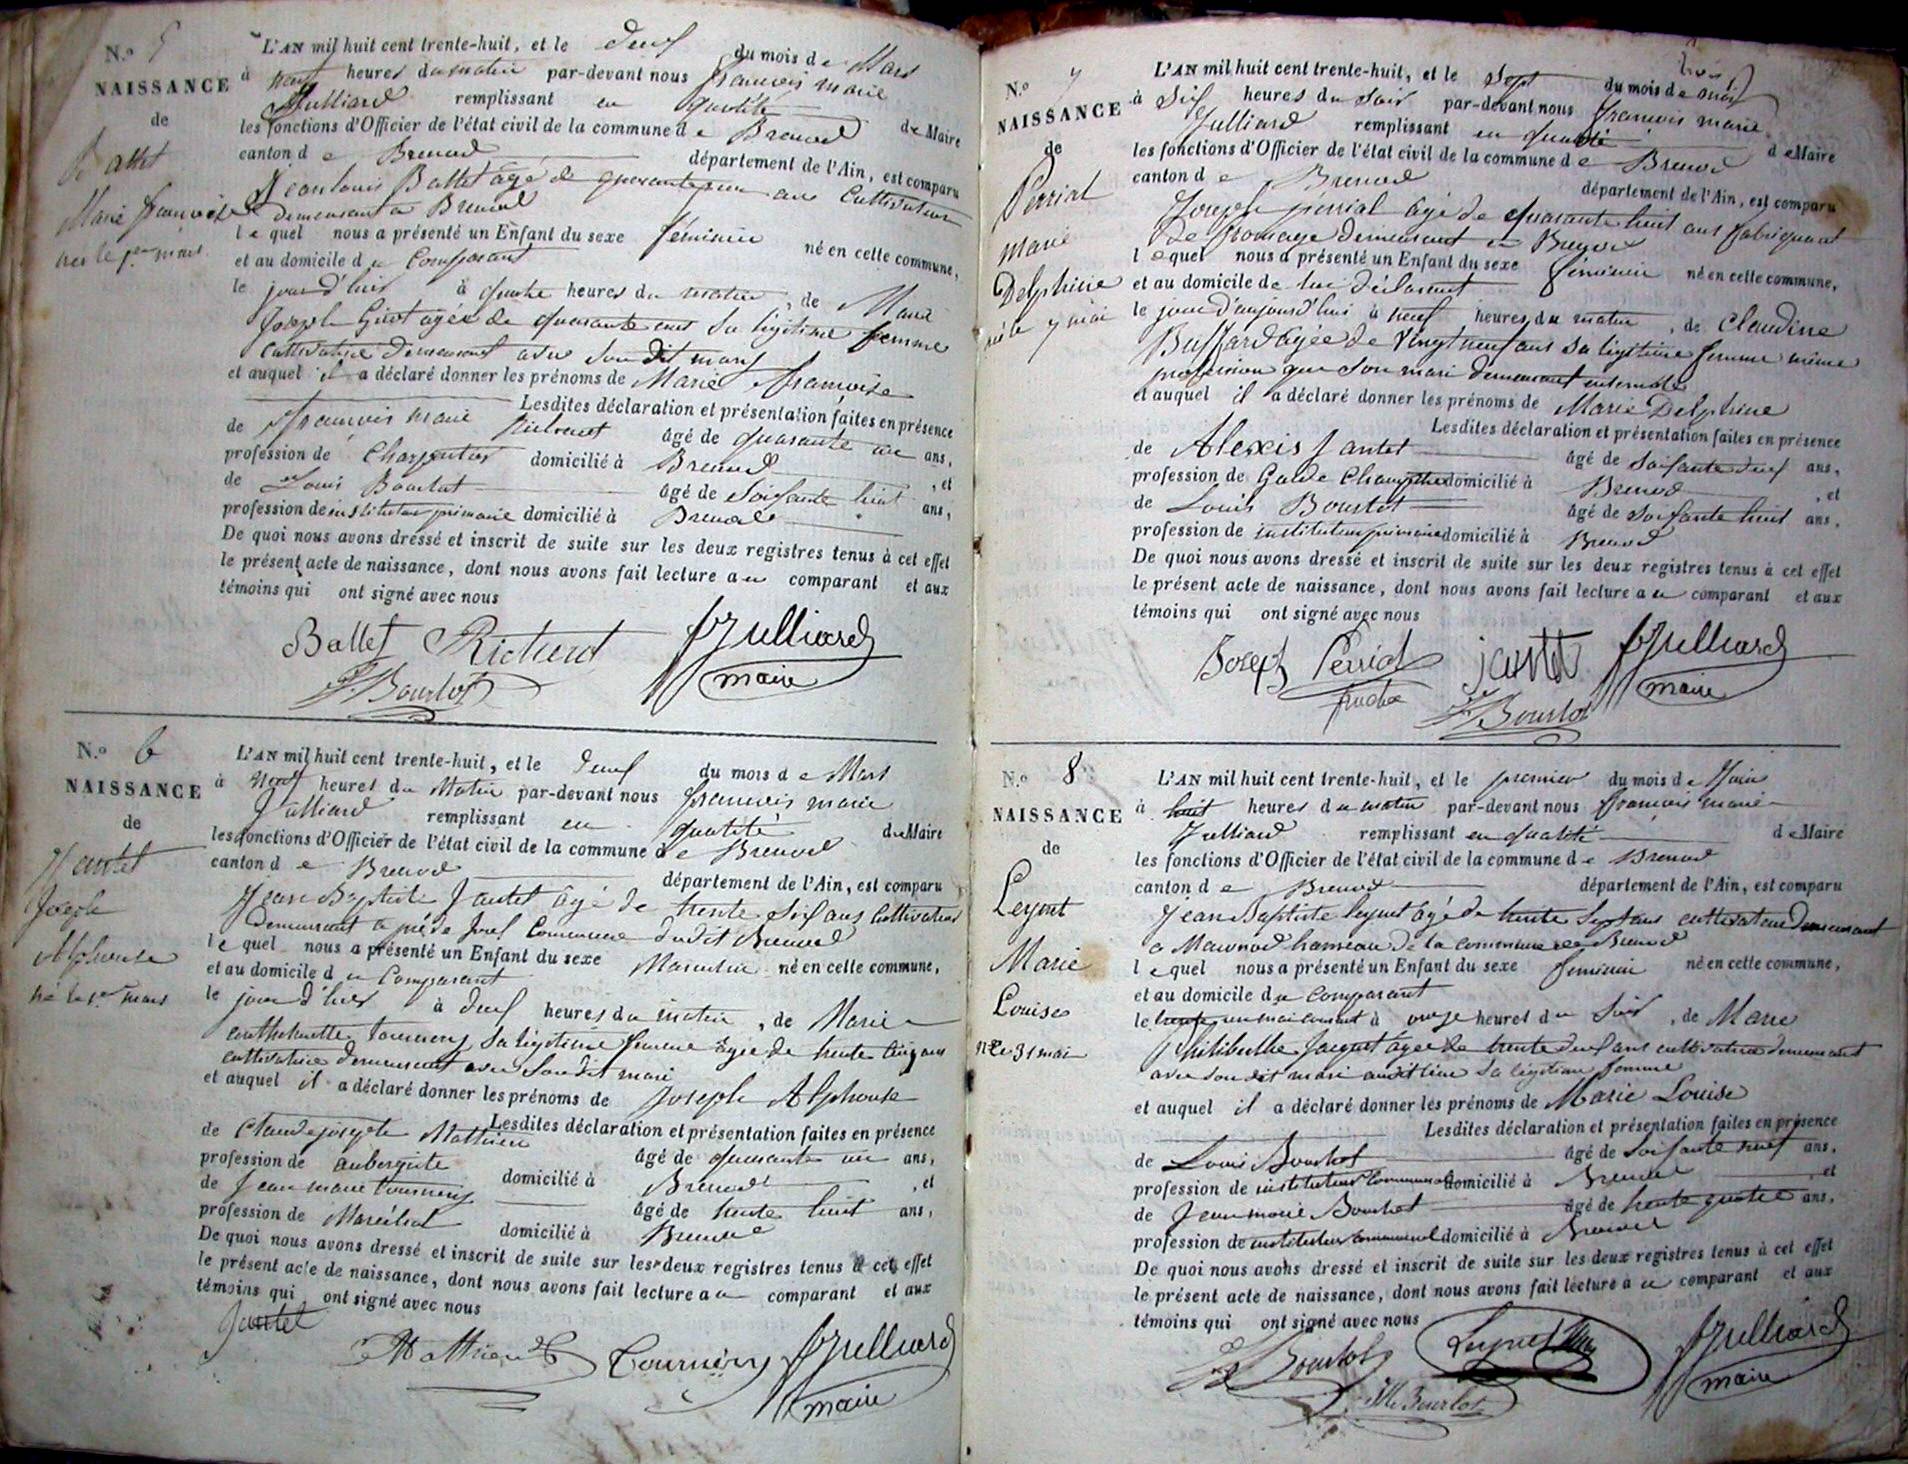 N.º 5
NAISSANCE
de
Ballet
Marie françoise
née le 1er mars
L'AN mil huit cent trente-huit, et le deux du mois de Mars
à neuf heures du matin par-devant nous françois marie
Julliard remplissant en qualité de Maire
les fonctions d'Officier de l'état civil de la commune de Brenod
canton de Brenod département de l'Ain, est comparu
Jean louis Ballet âgé de quarante un ans Cultivateur
demeurant a Brenod
lequel nous a présenté un Enfant du sexe féminin né en cette commune,
et au domicile du Comparant
le jour d'hier à quatre heures du matin, de Marie
Josephe Girot agée de quarante ans Sa légitime femme
Cultivatrice demeurant avec Son dit mary
et auquel il a déclaré donner les prénoms de Marie françoise
Lesdites déclaration et présentation faites en présence
de françois marie âgé de quarante un ans,
profession de Charpentier domicilié à Brenod, et
de Louis Bourlot âgé de Soixante huit ans,
profession de instituteur primaire domicilié à Brenod
De quoi nous avons dressé et inscrit de suite sur les deux registres tenus à cet effet
le présent acte de naissance, dont nous avons fait lecture au comparant et aux
témoins qui ont signé avec nous
Ballet Richerot fJulliard
Bourlot maire
N.º 6
NAISSANCE
de
Jantet
Joseph
Alphonse
né le 1er mars
L'AN mil huit cent trente-huit, et le deux du mois de Mars
à neuf heures du Matin par-devant nous françois marie
Julliard remplissant en qualité de Maire
les fonctions d'Officier de l'état civil de la commune de Brenod
canton de Brenod département de l'Ain, est comparu
Jean Baptiste Jantet âgé de trente Six ans Cultivateur
demeurant a Commune dudit Brenod
lequel nous a présenté un Enfant du sexe Masculin né en cette commune,
et au domicile du Comparant
le jour d'hier à deux heures du matin, de Marie
Tournery Sa légitime femme âgée de trente cinq ans
cultivatrice demeurant avec Son dit mari
et auquel il a déclaré donner les prénoms de Joseph Alphonse
Lesdites déclaration et présentation faites en présence
de Claude joseph Mathieu âgé de quarante un ans,
profession de aubergiste domicilié à Brenod, et
de Jean marie Tournery âgé de trente huit ans,
profession de Maréchal domicilié à Brenod
De quoi nous avons dressé et inscrit de suite sur les deux registres tenus à cet effet
le présent acte de naissance, dont nous avons fait lecture au comparant et aux
témoins qui ont signé avec nous
Jantel
Mathieu Tournery fJulliard
maire
N.º 7
NAISSANCE
de
Perrial
marie
Delphine
née le 7 mai
L'AN mil huit cent trente-huit, et le Sept du mois de mai
à Six heures du Soir par-devant nous françois marie
Julliard remplissant en qualité de Maire
les fonctions d'Officier de l'état civil de la commune de Brenod
canton de Brenod département de l'Ain, est comparu
Joseph perrial âgé de quarante huit ans fabriquant
de fromage demeurant a Brenod
lequel nous a présenté un Enfant du sexe féminin né en cette commune,
et au domicile de lui déclarant
le jour d'aujourd'hui à neuf heures du matin, de Claudine
Buffard âgée de Vingt neuf ans Sa légitime femme même
profession que Son mari demeurant ensemble
et auquel il a déclaré donner les prénoms de Marie Delphine
Lesdites déclaration et présentation faites en présence
de Alexis Jantet âgé de Soixante deux ans,
profession de Garde Champêtre domicilié à Brenod, et
de Louis Bourlot âgé de Soixante huit ans,
profession de instituteur primaire domicilié à Brenod
De quoi nous avons dressé et inscrit de suite sur les deux registres tenus à cet effet
le présent acte de naissance, dont nous avons fait lecture au comparant et aux
témoins qui ont signé avec nous
Joseph Perrial jantet fJulliard
Bourlot maire
N.º 8
NAISSANCE
de
Leynet
Marie
Louise
née le 31 mai
L'AN mil huit cent trente-huit, et le premier du mois de Juin
à huit heures du matin par-devant nous françois marie
Julliard remplissant en qualité de Maire
les fonctions d'Officier de l'état civil de la commune de Brenod
canton de Brenod département de l'Ain, est comparu
Jean Baptiste leynet âgé de trente Sept ans cultivateur demeurant
a hameau de la commune de Brenod
lequel nous a présenté un Enfant du sexe féminin né en cette commune,
et au domicile du comparant
le trente un mai courant à onze heures du Soir, de Marie
Philiberthe Jacquet âgée de trente deux ans cultivatrice demeurant
avec Son dit mari audit lieu Sa légitime femme
et auquel il a déclaré donner les prénoms de Marie Louise
Lesdites déclaration et présentation faites en présence
de Louis Bourlot âgé de Soixante neuf ans,
profession de instituteur Communal domicilié à Brenod, et
de Jean marie Bourlot âgé de trente quatre ans,
profession de instituteur communal domicilié à Brenod
De quoi nous avons dressé et inscrit de suite sur les deux registres tenus à cet effet
le présent acte de naissance, dont nous avons fait lecture au comparant et aux
témoins qui ont signé avec nous
Bourlot Leynet fJulliard
JM Bourlot maire